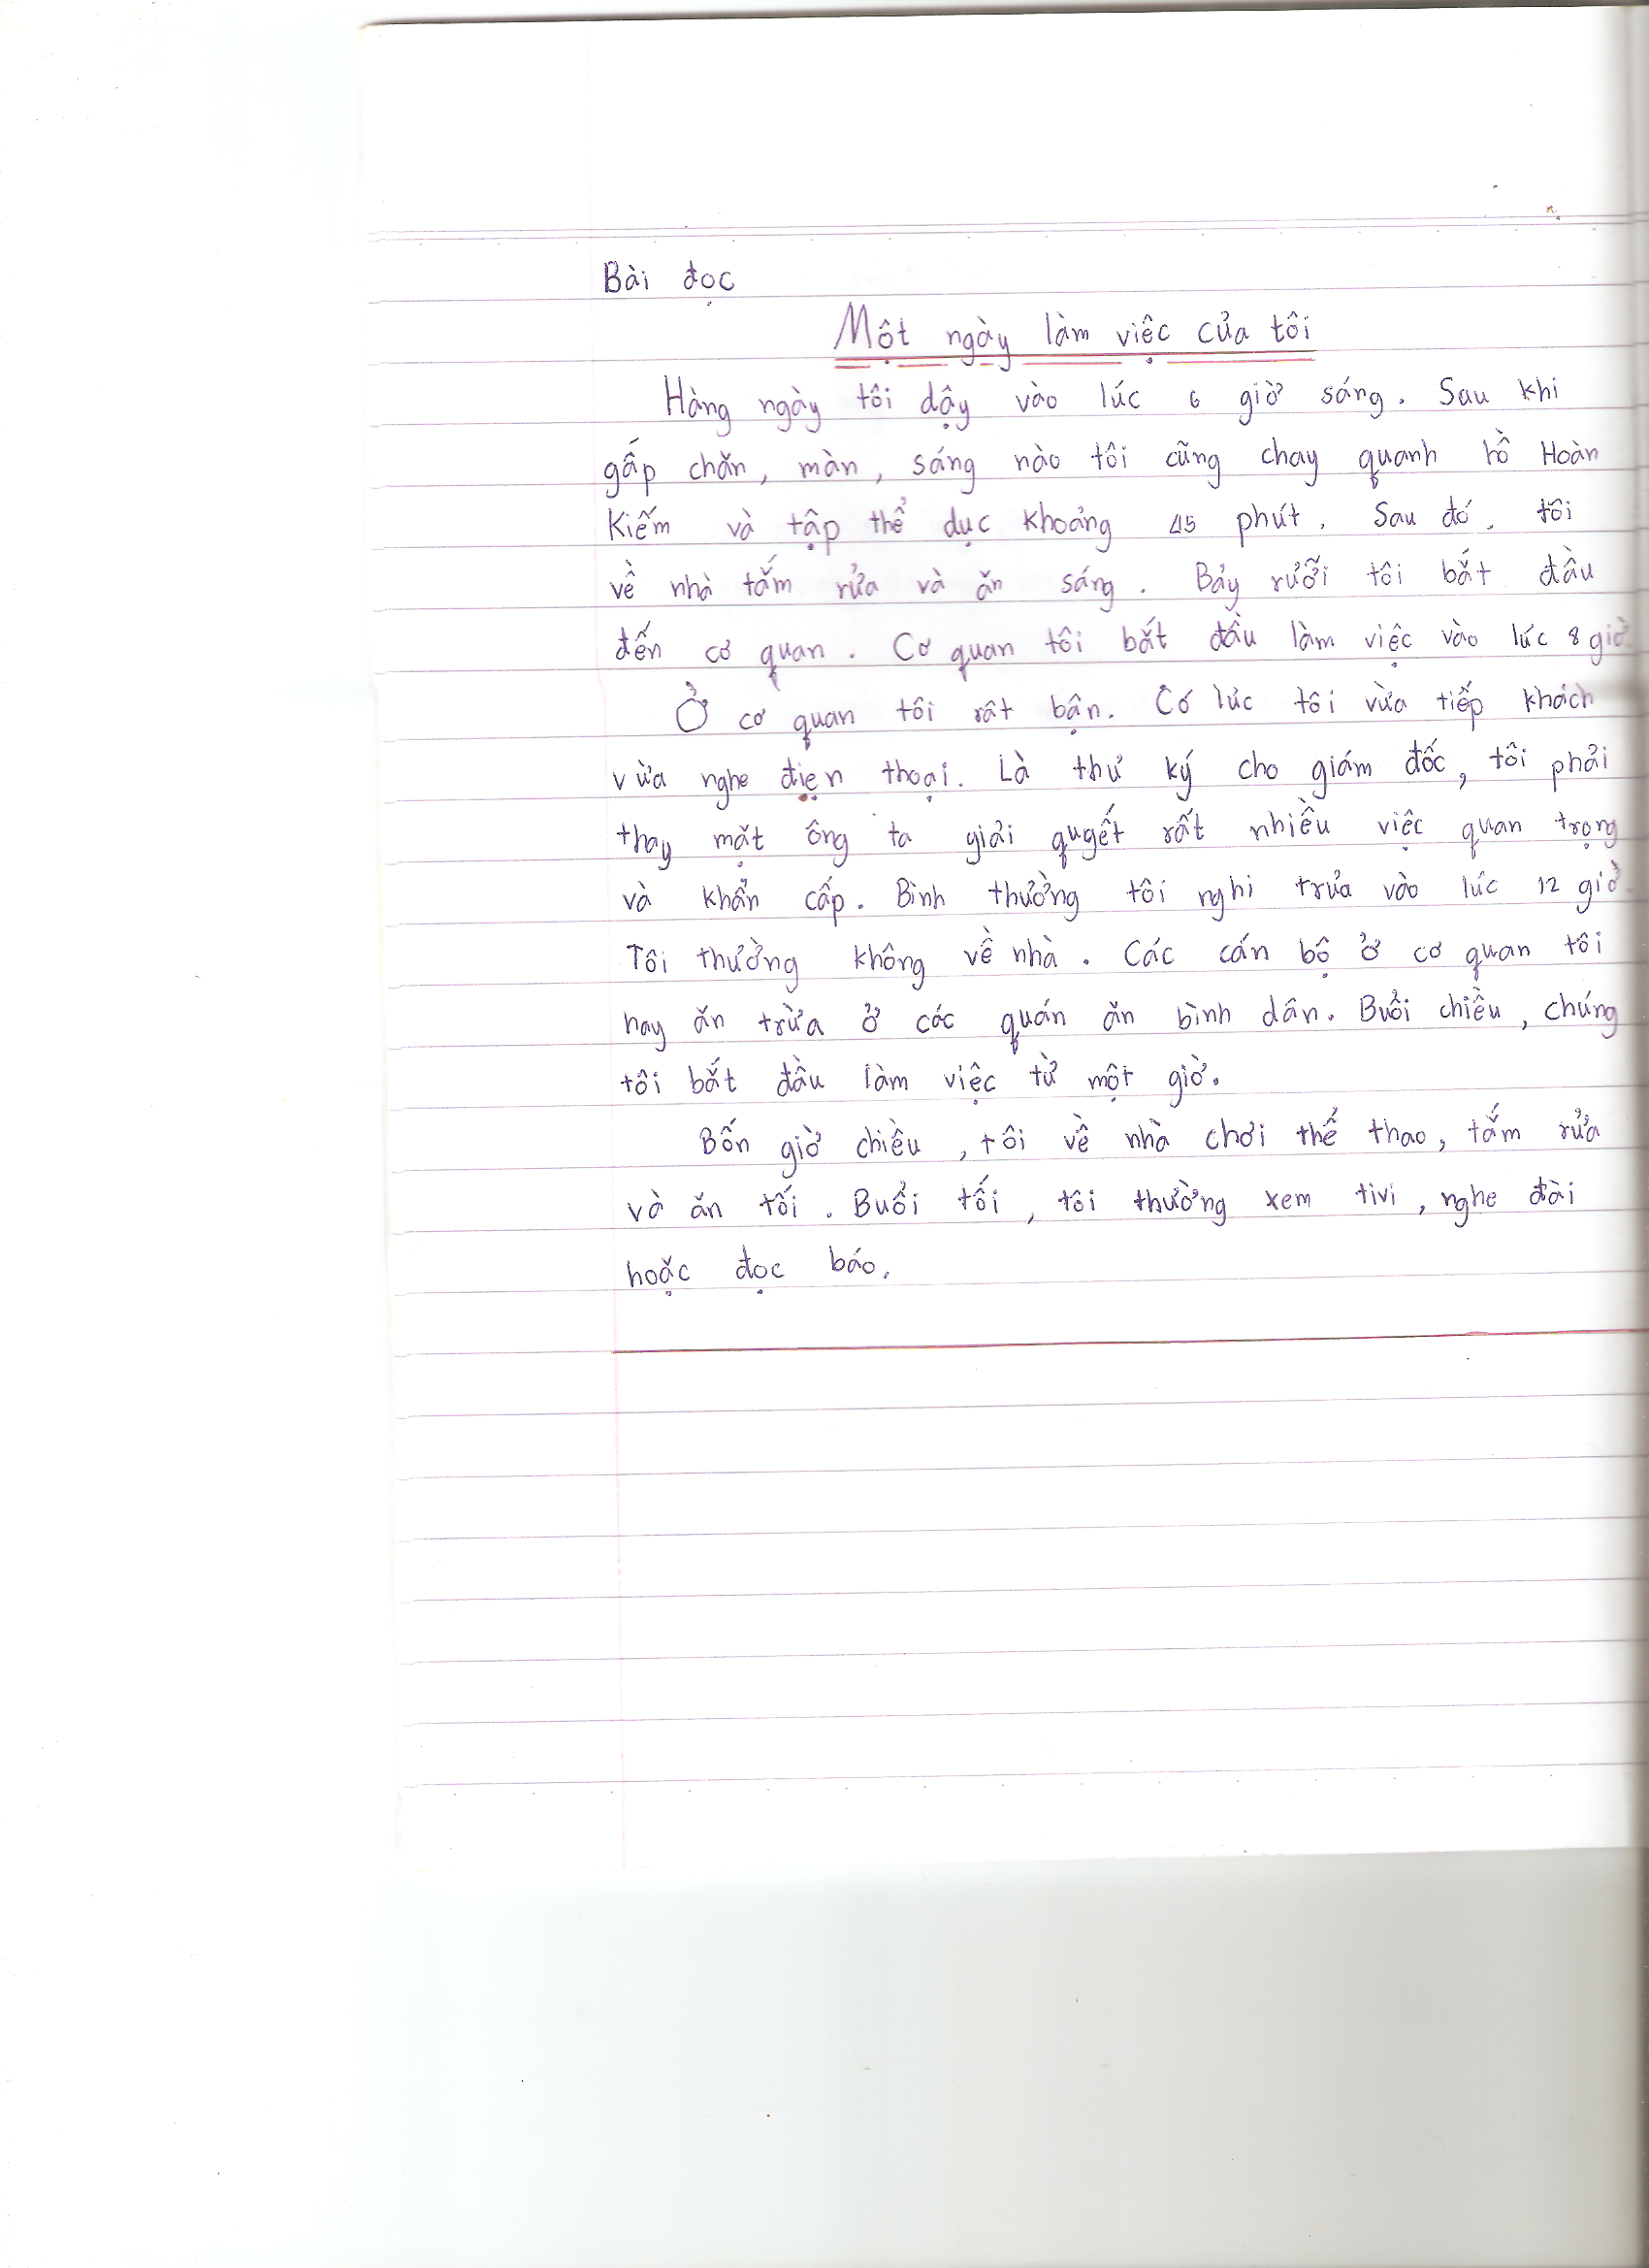 Bài đọc
Một ngày làm việc của tôi
Hàng ngày tôi dậy vào lúc 6 giờ sáng. Sau khi
gấp chăn, màn, sáng nào tôi cũng chay quanh hồ Hoàn
Kiếm và tập thể dục khoảng 45 phút. Sau đó, tôi
về nhà tắm rửa và ăn sáng. Bảy rưỡi tôi bắt đầu
đến cơ quan. Cơ quan tôi bắt đầu làm việc vào lúc 8 giờ
Ở cơ quan tôi rất bận. Có lúc tôi vừa tiếp khách
vừa nghe điẹn thoại. Là thư ký cho giám đốc, tôi phải
thay mặt ông ta giải quyết rất nhiều việc quan trọng
và khẩn cấp. Bình thường tôi nghi trưa vào lúc 12 giờ.
Tôi thường không về nhà. Các cán bộ ở cơ quan tôi
hay ăn trừa ở các quán ăn bình dân. Buổi chiều, chúng
tôi bắt đầu làm việc từ một giờ.
Bốn giờ chiều, tôi về nhà chơi thể thao, tắm rửa
và ăn tối. Buổi tối, tôi thường xem tivi, nghe đài
hoặc đọc báo.